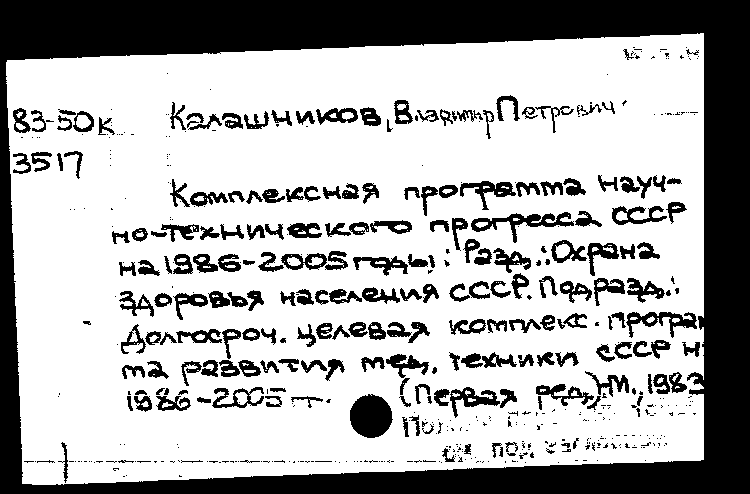 83-50к Калашников, Владимир Петрович.
3517
Комплексная программа науч-
но-технического прогресса СССР
на 1986-2005 годы: Разд.: Охрана
здоровья населения СССР. Подразд.:
Долгосроч. целевая комплекс. програм
ма развития мед. техники СССР н
1986-2005 гг. (Первая ред.) М., 1983
см под заглавием